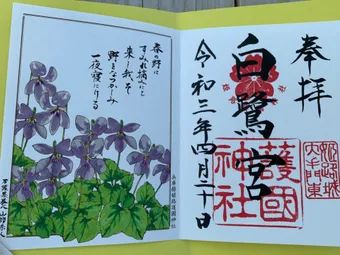 奉拝
姫路城
大手門東
白鷺宮
護國
神社
令和三年四月二十日
春の野に
すみれ摘みにと
来し我そ
野をなつかしみ
一夜寝にける
兵庫縣姫路護國神社